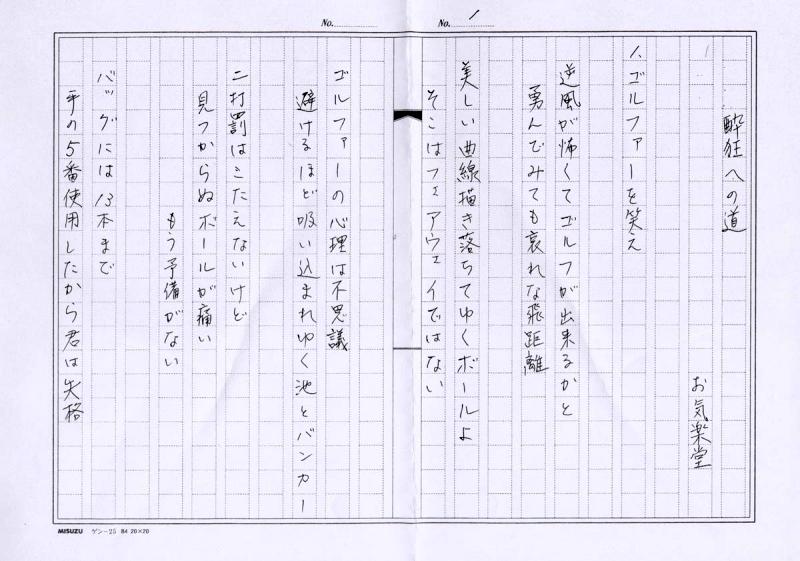 No.
No. 1
酔狂への道
お気楽堂
1. ゴルファーを笑え
逆風が怖くてゴルフが出来るかと
勇んでみても哀れな飛距離
美しい曲線描き落ちてゆくボールよ
そこはフェアウェイではない
ゴルファーの心理は不思議
避けるほど吸い込まれゆく池とバンカー
二打罰はこたえないけど
見つからぬボールが痛い
もう予備がない
バッグには13本まで
手の5番使用したから君は失格
MISUZU ゲン-25 B4 20×20